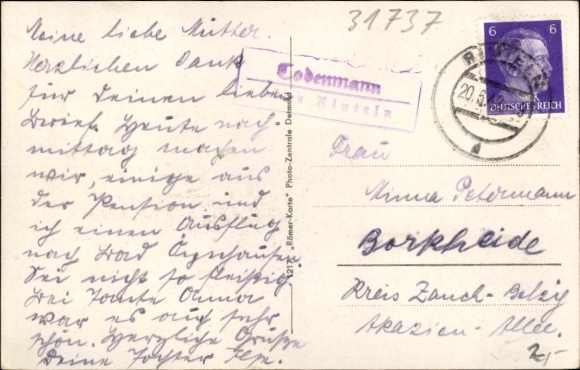 31737
Meine liebe Mutter.
Herzlichen Dank
für Deinen lieben
Brief. Heute nach-
mittag machen
wir, einige aus
der Pension und
ich einen Ausflug
nach Bad Oeynhausen
Sei nicht so fleißig
Bei Tante Anna
war es auch sehr
schön. Herzliche Grüße
Deine Tochter Ilse.
1217 "Römer-Karte" Photo-Zentrale Detmold
Todenmann
Rinteln
6 6
DEUTSCHES REICH
RINTELN
20.5.
d
Frau
Minna Petermann
Borkheide
Kreis Zauch-Belzig
Akazien-Allee.
2,-